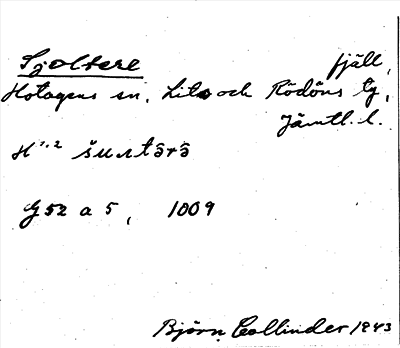 Sjoltere fjäll,
Hotagens sn, Lits och Rödöns tg,
Jämtl. l.
H 1.2 šuņtərə̂
G 52 a 5, 1009
Björn Collinder 1943